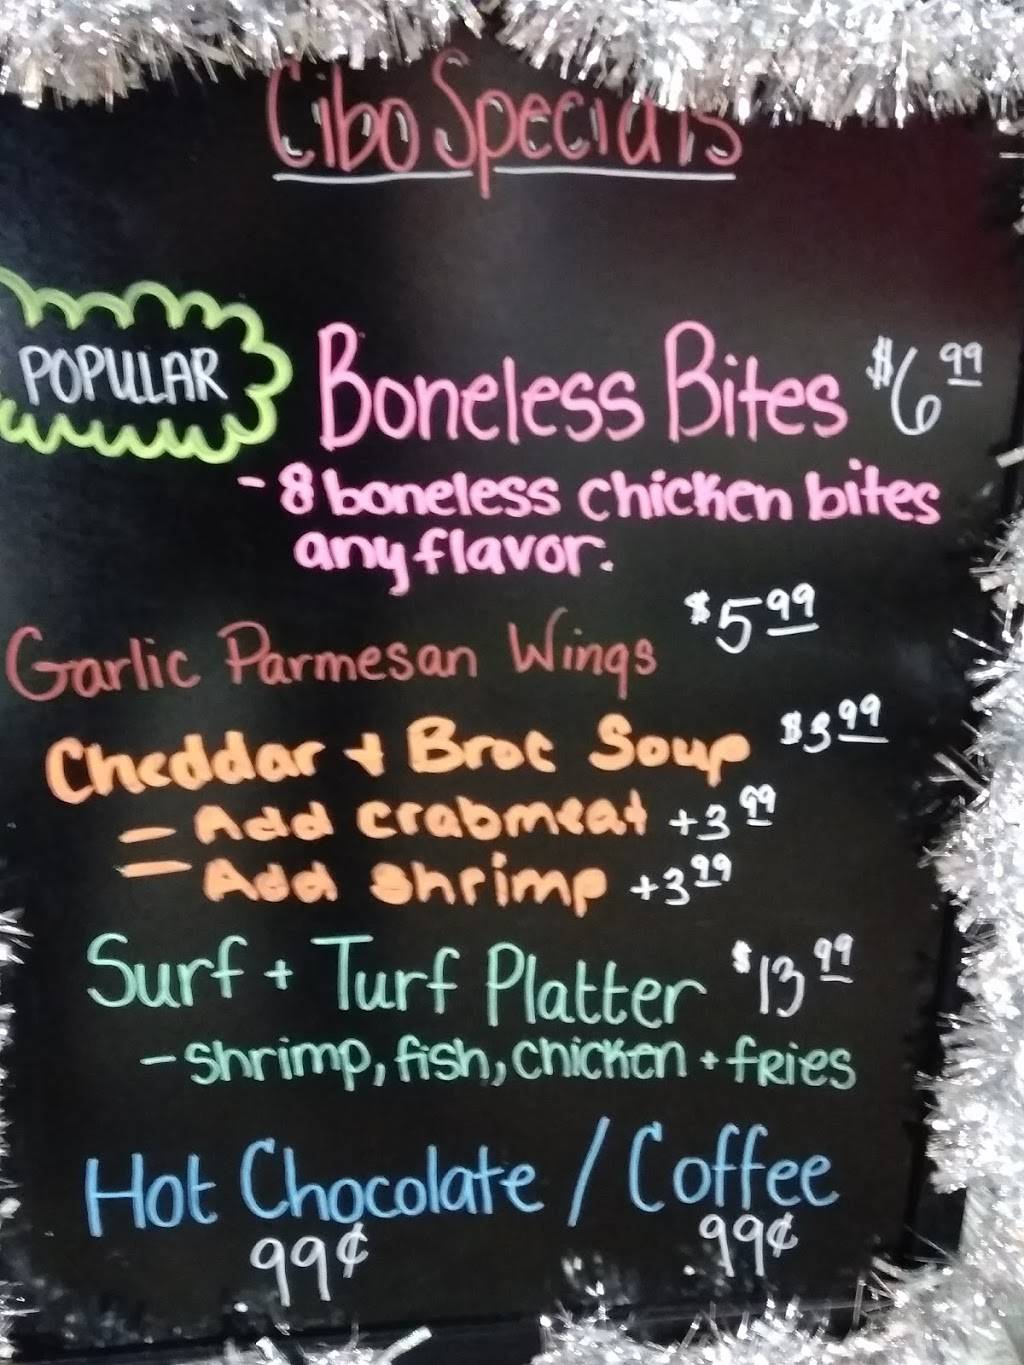 Cibo Specials
POPULAR
Boneless Bites $6.99
- 8 boneless chicken bites
any flavor.
Garlic Parmesan Wings $5.99
Cheddar + Broc Soup $3.99
- Add crabmeat +3.99
- Add shrimp +3.99
Surf + Turf Platter $13.99
- shrimp, fish, chicken + fries
Hot Chocolate / Coffee
99¢ 99¢